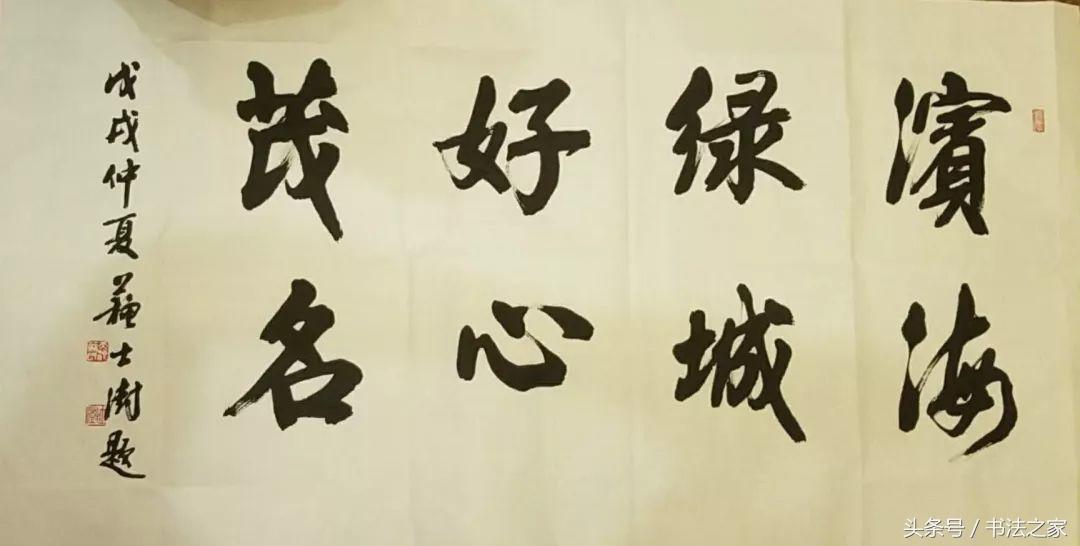 濱海
绿城
好心
茂名
戊戌仲夏蘇士澍题
头条号 / 书法之家